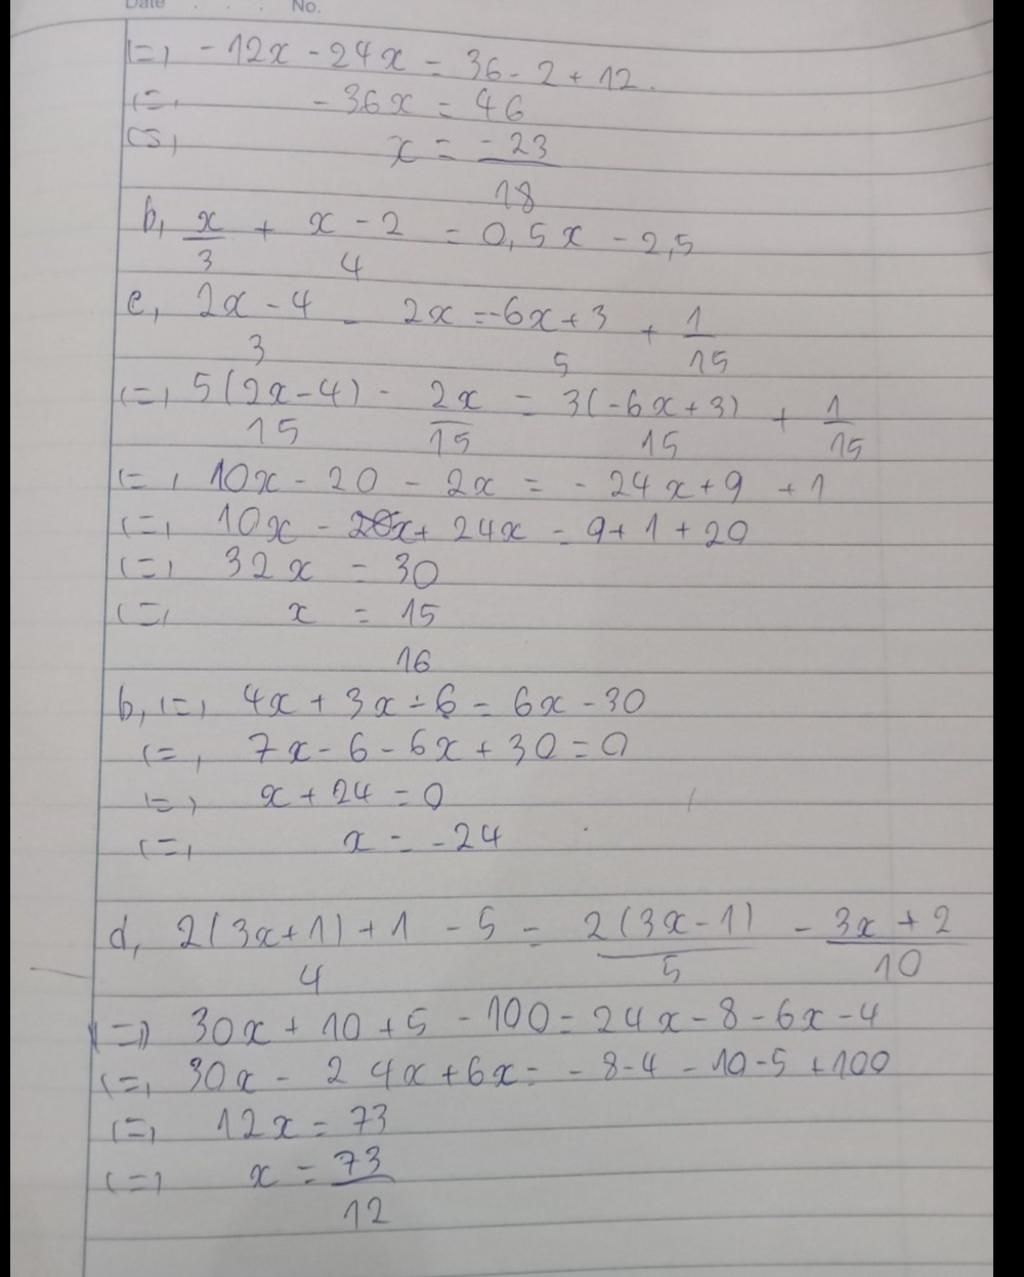 Date No.
(=) -12x - 24x = 36 - 2 + 12.
(=) -36x = 46
(=) x = -23/18
b, x/3 + x-2/4 = 0,5x - 2,5
e, 2x-4/3 - 2x = -6x+3/5 + 1/15
(=) 5(2x-4)/15 - 2x/15 = 3(-6x+3)/15 + 1/15
(=) 10x - 20 - 2x = -24x + 9 + 1
(=) 10x - 2x + 24x = 9 + 1 + 20
(=) 32x = 30
(=) x = 15/16
b, (=) 4x + 3x - 6 = 6x - 30
(=) 7x - 6 - 6x + 30 = 0
(=) x + 24 = 0
(=) x = -24
d, 2(3x+1)+1/4 - 5 = 2(3x-1)/5 - 3x+2/10
(=) 30x + 10 + 5 - 100 = 24x - 8 - 6x - 4
(=) 30x - 24x + 6x = -8 - 4 - 10 - 5 + 100
(=) 12x = 73
(=) x = 73/12